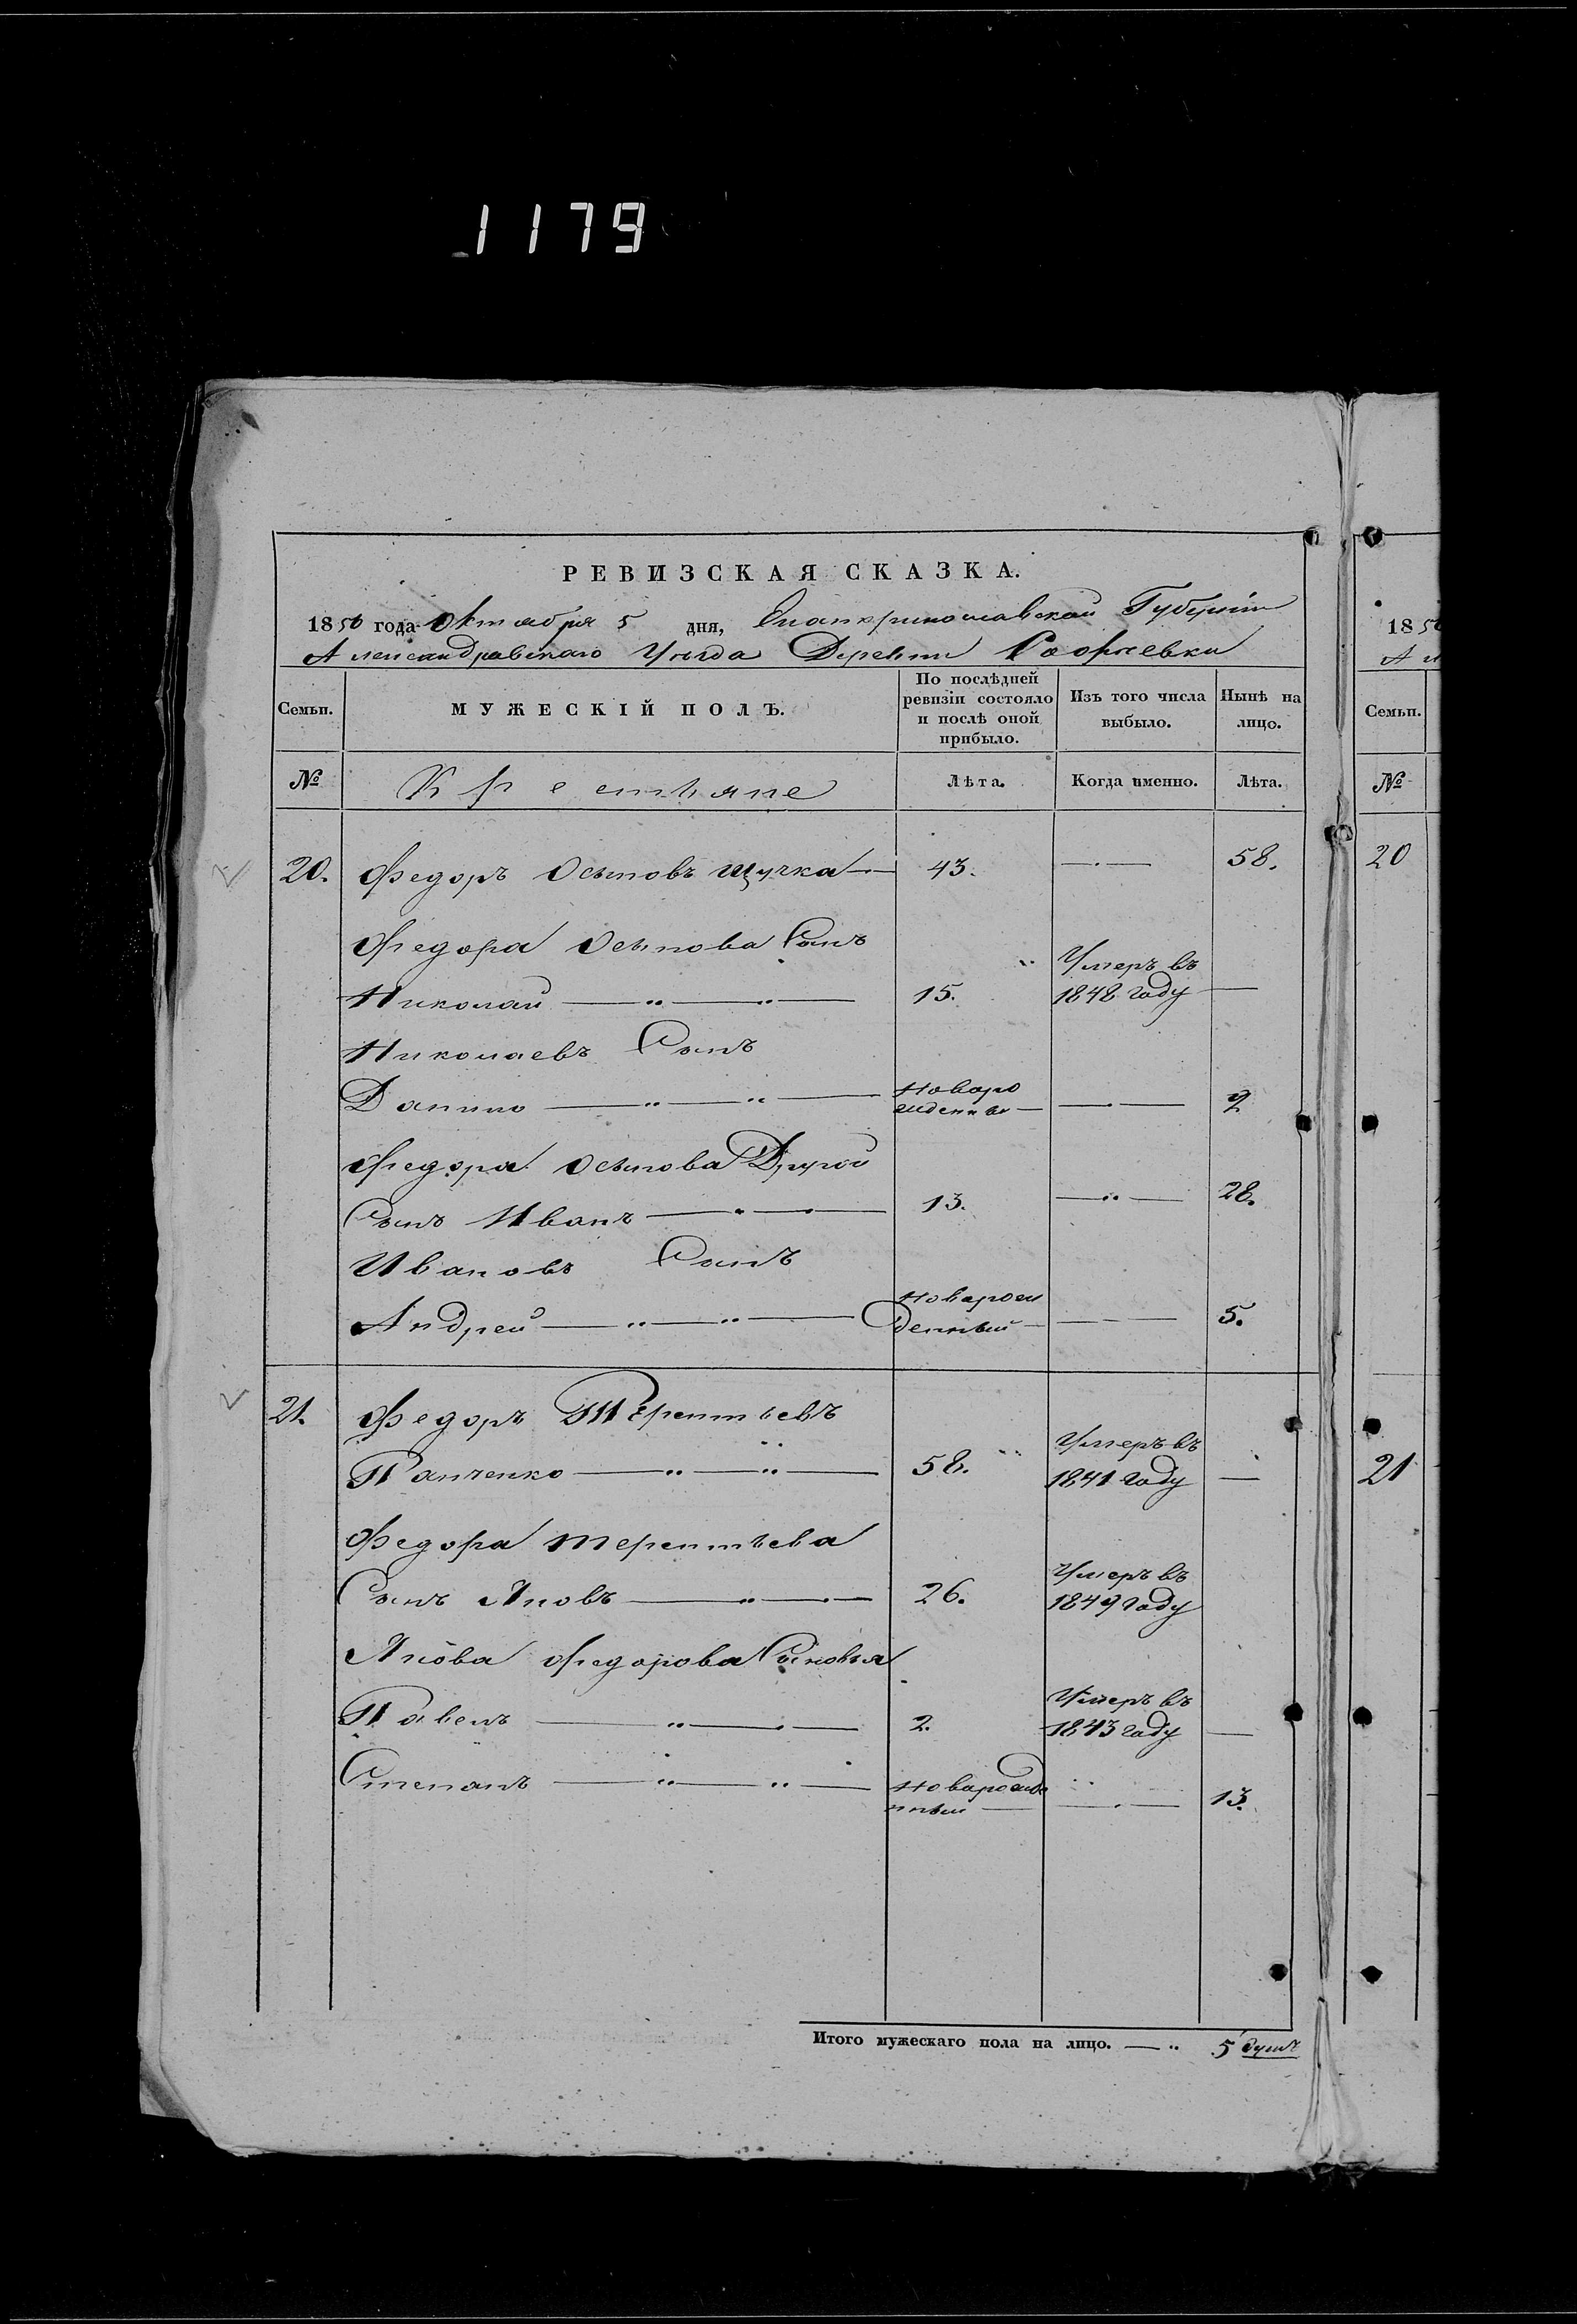 1179
РЕВИЗСКАЯ СКАЗКА.
1850 года Октября 5 дня, Екатеринославской Губерніи
Александравскаго Уѣзда Деревни
Семьи. МУЖЕСКІЙ ПОЛЪ. По послѣдней ревизіи состояло и послѣ оной прибыло. Изъ того числа выбыло. Нынѣ на лицо.
№ Крестьяне Лѣта. Когда именно. Лѣта.
20. Федоръ Осиповъ Щучка 43. 58.
Федора Осипова Сынъ
Николай 15. Умеръ въ 1848 году
Николаевъ Сынъ
Данило новорожденны 2
Федора Осипова Другой
Сынъ Иванъ 13. 28.
Ивановъ Сынъ
Андрей новарожденный 5.
21. Федоръ Терентьевъ
Панченко 58. Умеръ въ 1841 году
Федора Терентьева
Сынъ Яковъ 26. Умеръ въ 1849 году
Якова Федорова Сыновья
Павелъ 2. Умеръ въ 1843 году
Степанъ новарожденный 13.
Итого мужескаго пола на лицо. 5 душъ
1850
Семьи.
№
20
21